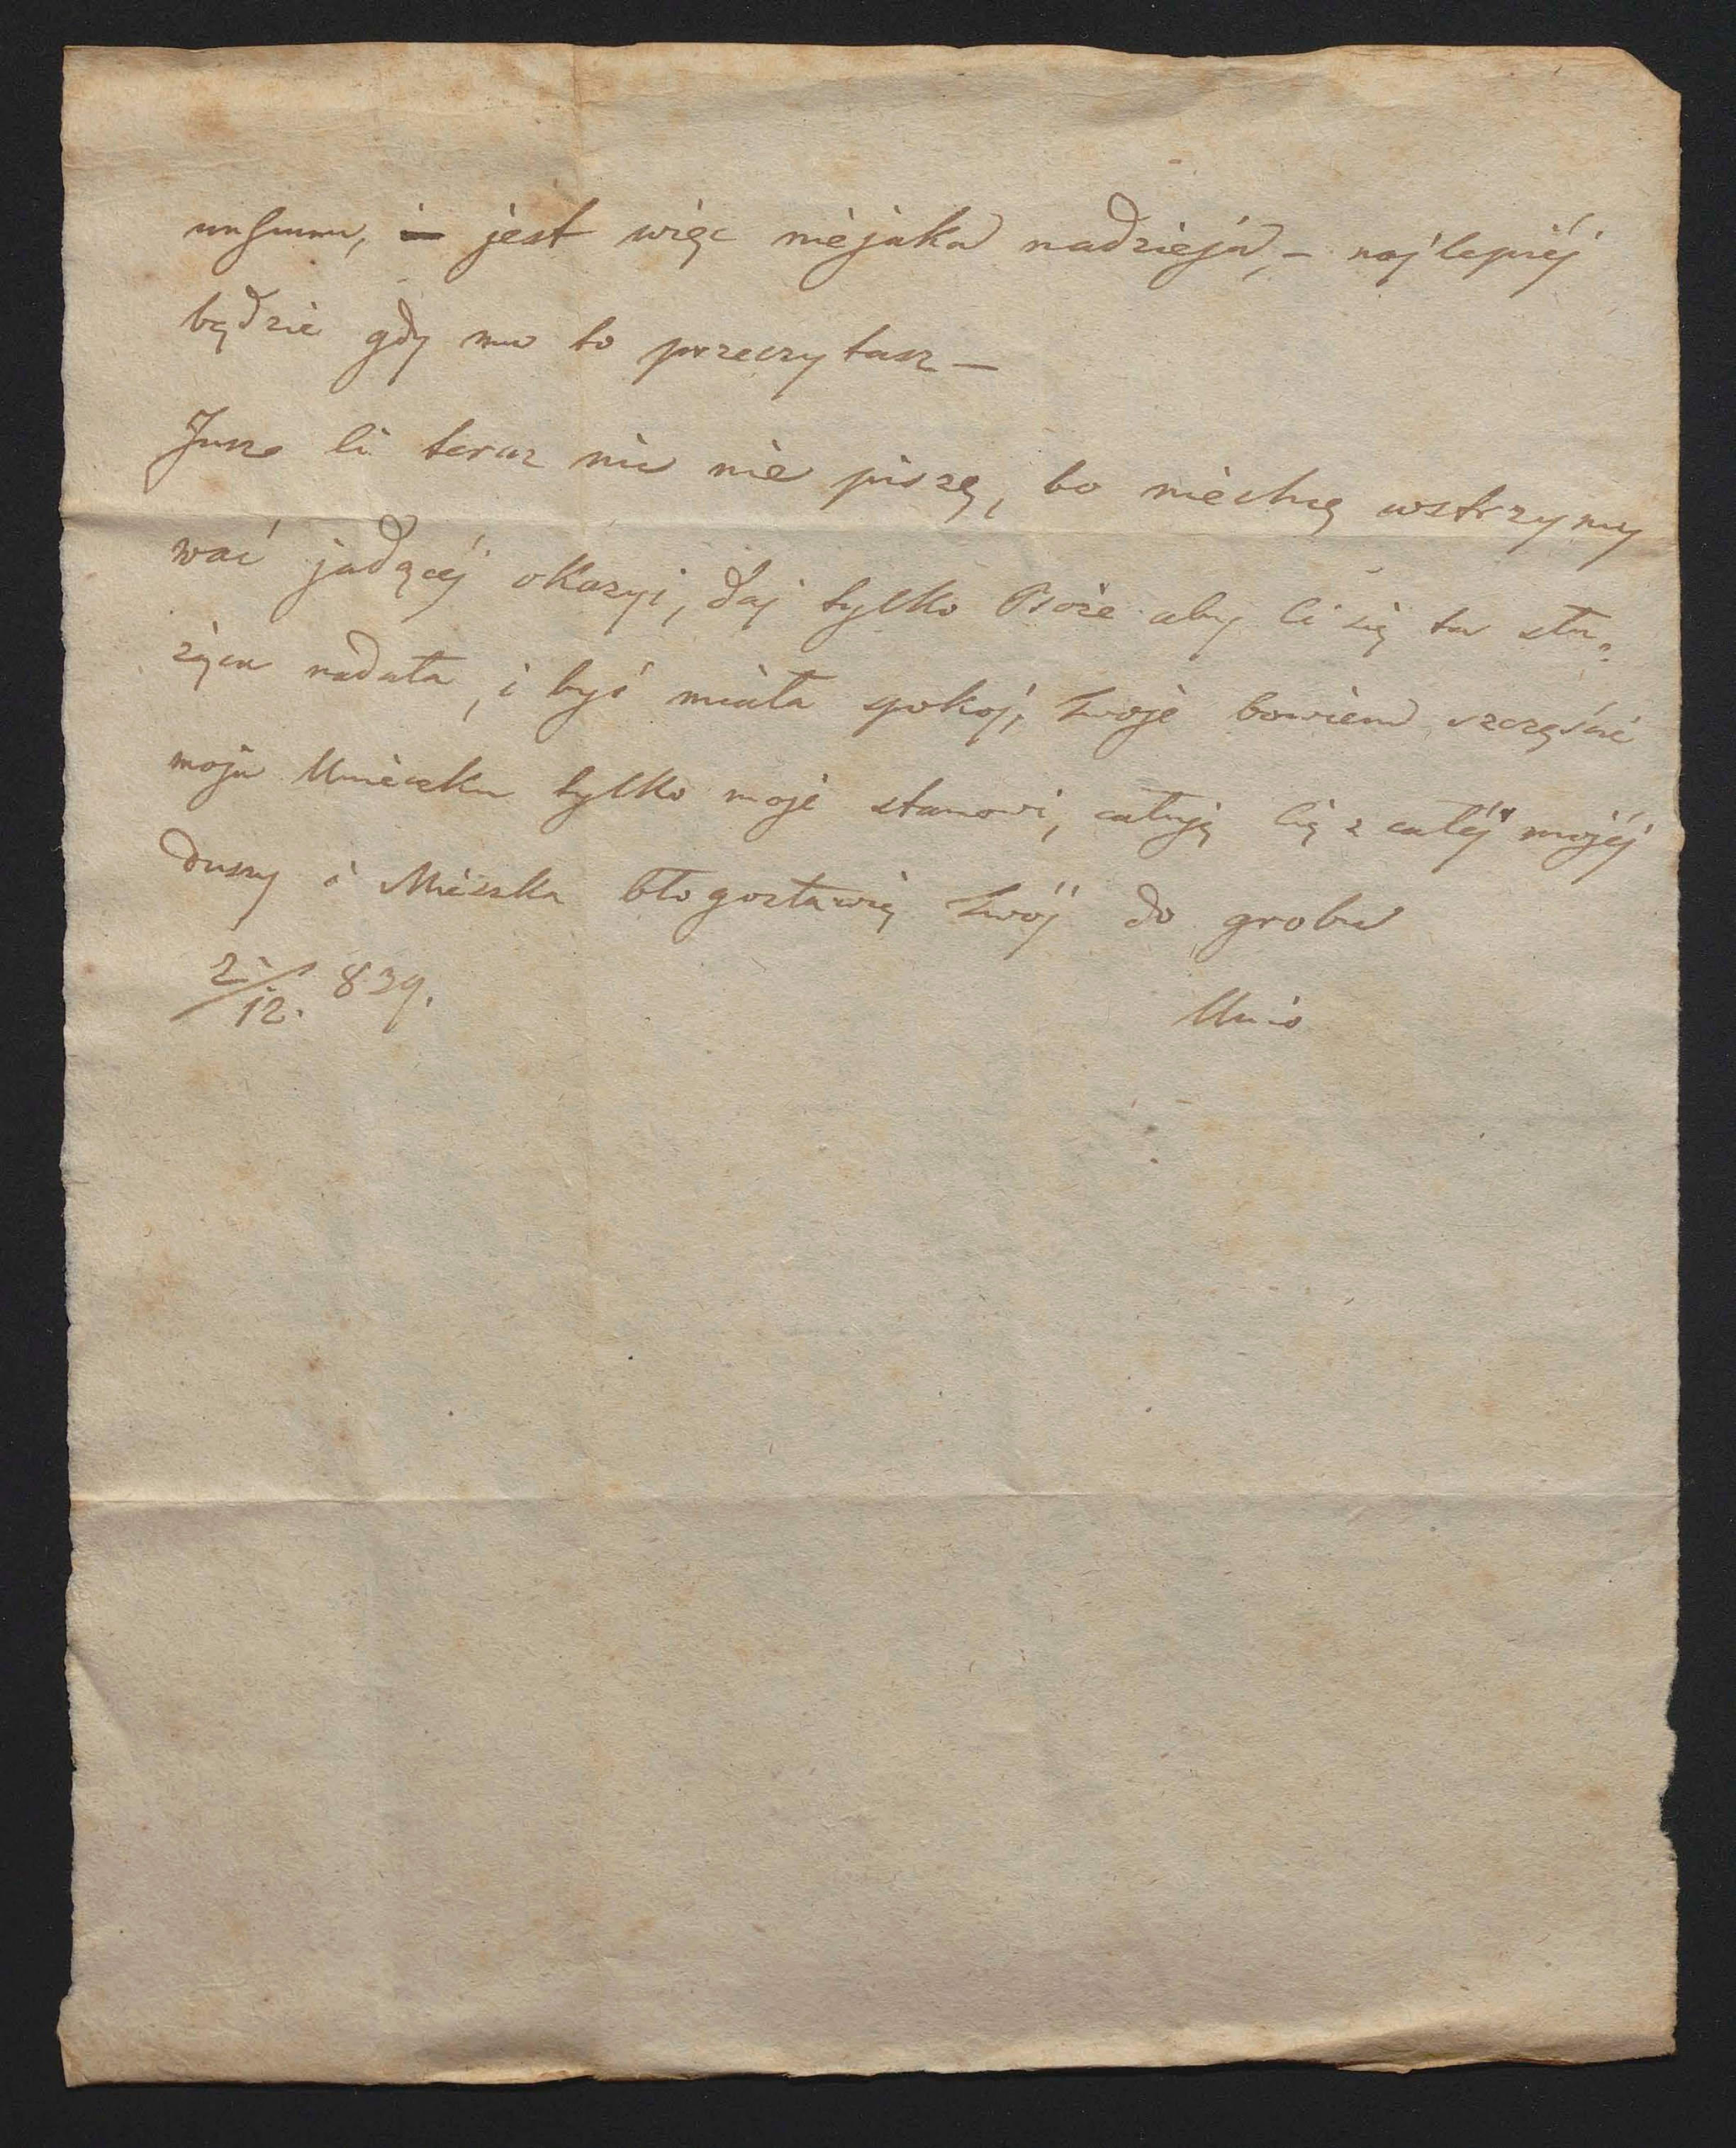 jest więc niejaka nadzieja, – najlepiéj
będzie gdy mu to przeczytasz –
Ci teraz nic nie piszę, bo niechcę wstrzymy
wać jadącéj okazyi, daj tylko Boże aby Ci się ta słu=
żąca nadała, i byś miała spokój, Twoje bowiem szczęście
moja tylko moje stanowi, całuję Cię z całéj mojéj
duszy i Mieszka błogosławię Twój do grobu
2/12. 839.